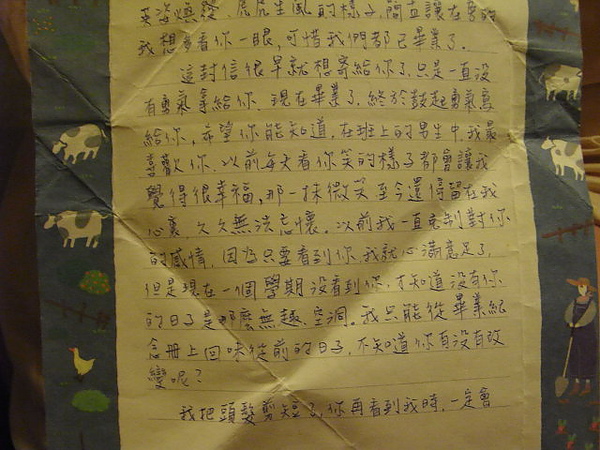 英姿煥發、虎虎生風的樣子,簡直讓在旁的
我想多看你一眼,可惜我們都已畢業了。
這封信很早就想寄給你了,只是一直沒
有勇氣拿給你。現在畢業了,終於鼓起勇氣寫
給你,希望你能知道,在班上的男生中我最
喜歡你。以前每天看你笑的樣子都會讓我
覺得很幸福,那一抹微笑至今還停留在我
心裏,久久無法忘懷。以前我一直克制對你
的感情,因為只要看到你,我就心滿意足了,
但是現在一個學期沒看到你,才知道沒有你
的日子是那麼無趣、空洞。我只能從畢業紀
念冊上回味從前的日子,不知道你有沒有改
變呢?
我把頭髮剪短了,你再看到我時,一定會